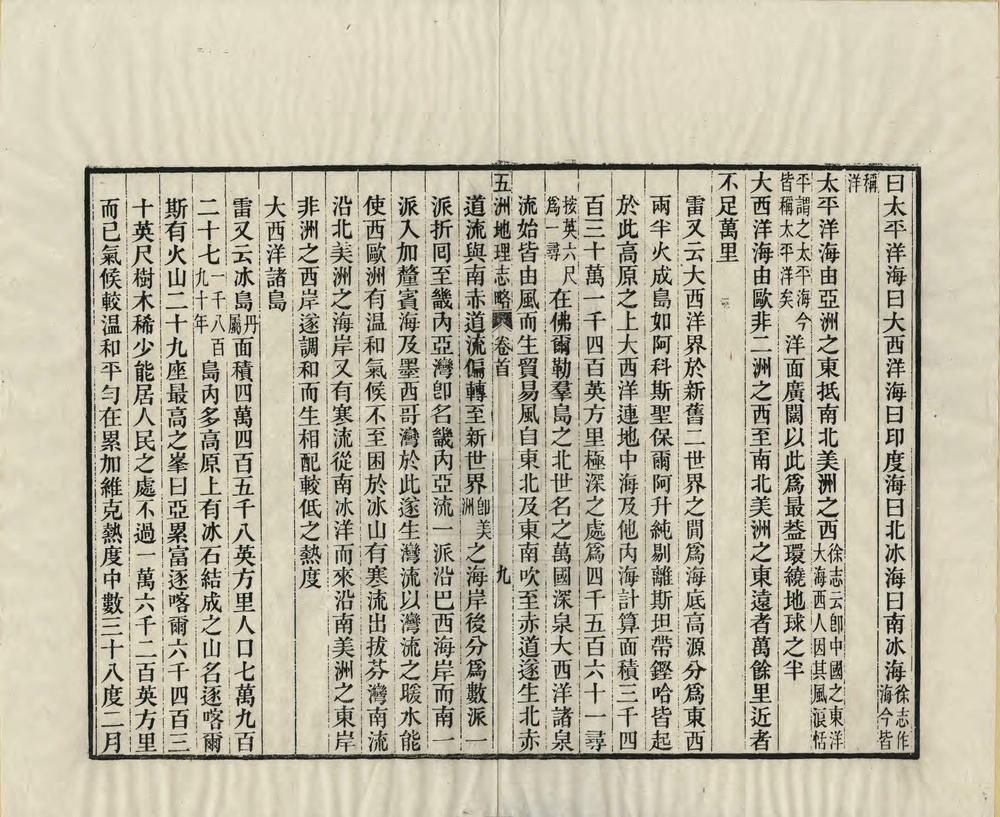 曰太平洋海曰大西洋海曰印度海曰北冰海曰南冰海徐志作海今皆
稱洋
太平洋海由亞洲之東抵南北美洲之西徐志云卽中國之東洋大海西人因其風浪恬
平謂之太平海今皆稱太平洋矣洋面廣闊以此爲最益環繞地球之半
大西洋海由歐非二洲之西至南北美洲之東遠者萬餘里近者
不足萬里
雷又云大西洋界於新舊二世界之間爲海底高源分爲東西
兩半火成島如阿科斯聖保爾阿升純剔離斯坦帶鏗哈皆起
於此高原之上大西洋連地中海及他內海計算面積三千四
百三十萬一千四百英方里極深之處爲四千五百六十一尋
按英六尺爲一尋在佛爾勒羣島之北世名之萬國深泉大西洋諸泉
流始皆由風而生貿易風自東北及東南吹至赤道遂生北赤
五洲地理志略 卷首 九
道流與南赤道流偏轉至新世界卽美洲之海岸後分爲數派一
派折回至畿內亞灣卽名畿內亞流一派沿巴西海岸而南一
派入加釐賓海及墨西哥灣於此遂生灣流以灣流之暖水能
使西歐洲有温和氣候不至困於冰山有寒流出拔芬灣南流
沿北美洲之海岸又有寒流從南冰洋而來沿南美洲之東岸
非洲之西岸遂調和而生相配較低之熱度
大西洋諸島
雷又云冰島丹屬面積四萬四百五千八英方里人口七萬九百
二十七一千八百九十年島內多高原上有冰石結成之山名逐喀爾
斯有火山二十九座最高之峯曰亞累富逐喀爾六千四百三
十英尺樹木稀少能居人民之處不過一萬六千二百英方里
而已氣候較温和平勻在累加維克熱度中數三十八度二月